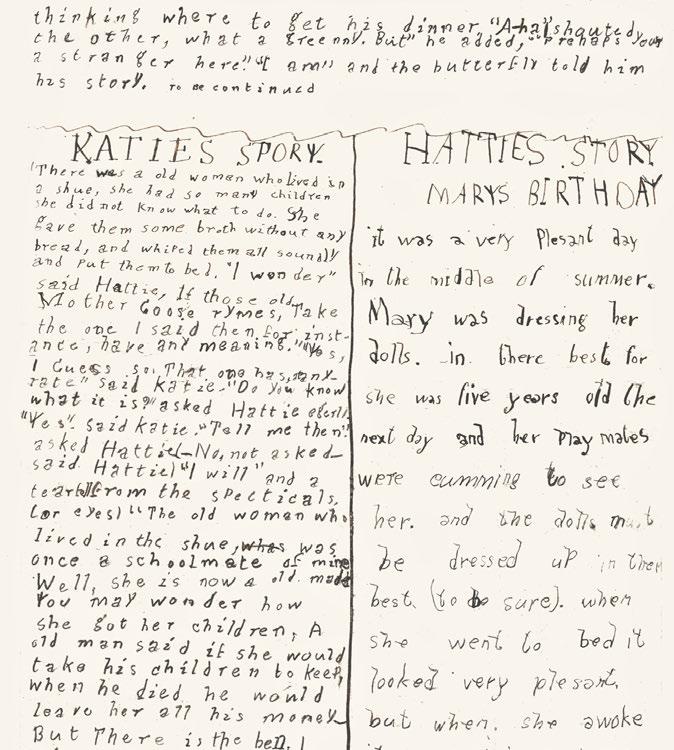 thinking where to get his dinner "A-ha" shouted
the other, what a greenny. But" he added, "Prehaps your
a stranger here." "I am" and the butterfly told him
his story. To be continued
KATIES SPORY.
"There was a old woman who lived in
a shue, she had so many children
she did not know what to do. She
gave them some broth without any
bread, and whiped them all soundly
and put them to bed. "I wonder"
said Hattie, If those old
Mother Goose rymes, Take
the one I said then for inst-
ance, have any meaning." "Yes,
I Guess so, That one has, any-
rate" said Katie. "Do you know
what it is?" asked Hattie
"Yes". said Katie. "Tell me then".
asked Hattie(-No, not asked-
said Hattie) "I will" and a
tear from the specticals,
(or eyes) "The old woman who
lived in the shue, whas was
once a schoolmate of mine
Well, she is now a old maid
You may wonder how
she got her children, A
old man said if she would
take his children to keep,
when he died he would
leave her all his money
But There is the bell. I
HATTIES STORY
MARYS BIRTHDAY
it was a very plesant day
in the middle of summer.
Mary was dressing her
dolls. in there best for
she was five years old the
next day and her play mates
were cumming to see
her. and the dolls must
be dressed up in their
best. (to be sure). when
she went to bed it
looked very plesant.
but when. she awoke